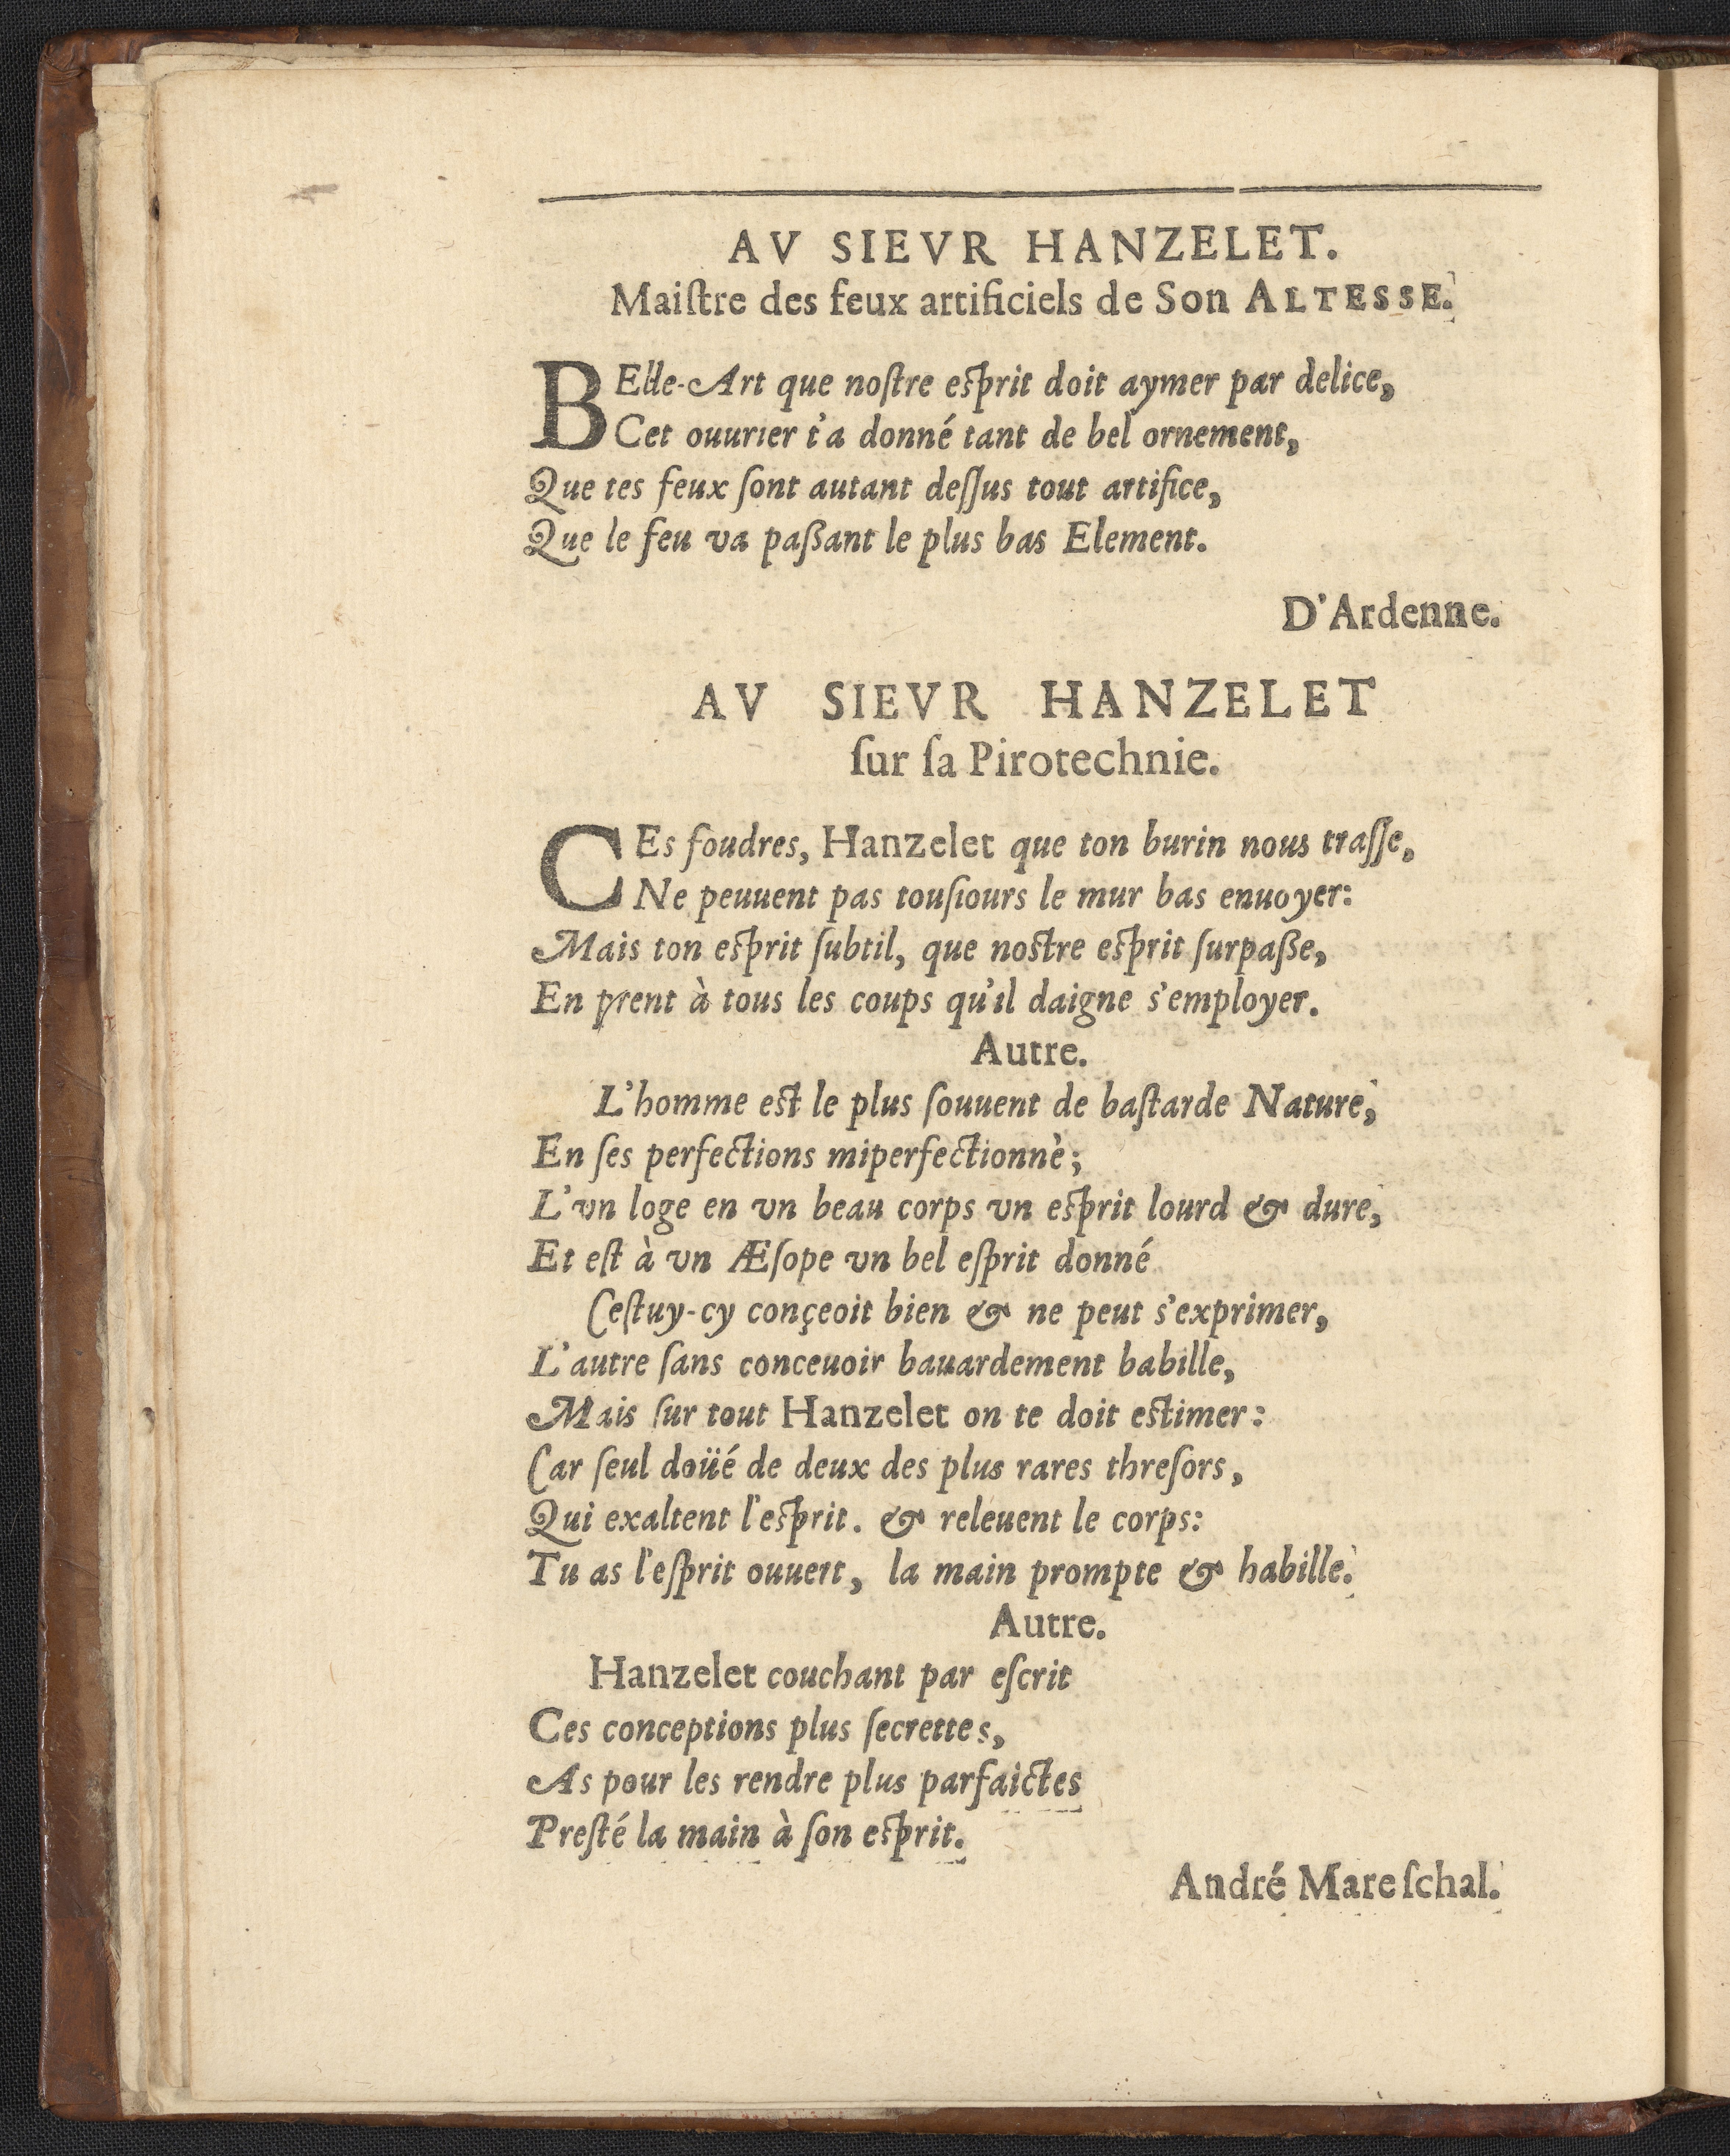 AV SIEVR HANZELET.
Maiſtre des feux artificiels de Son ALTESSE.
BElle-Art que noſtre eſprit doit aymer par delice,
Cet ouurier t'a donné tant de bel ornement,
Que tes feux ſont autant deſſus tout artifice,
Que le feu va paßant le plus bas Element.
D'Ardenne.
AV SIEVR HANZELET
ſur ſa Pirotechnie.
CEs foudres, Hanzelet que ton burin nous traſſe,
Ne peuuent pas touſiours le mur bas enuoyer:
Mais ton eſprit ſubtil, que noſtre eſprit ſurpaße,
En prent à tous les coups qu'il daigne s'employer.
Autre.
L'homme eſt le plus ſouuent de baſtarde Nature,
En ſes perfections miperfectionnè;
L'vn loge en vn beau corps vn eſprit lourd & dure,
Et eſt à vn Æſope vn bel eſprit donné
Ceſtuy-cy conçeoit bien & ne peut s'exprimer,
L'autre ſans conceuoir bauardement babille,
Mais ſur tout Hanzelet on te doit eſtimer:
Car ſeul doüé de deux des plus rares threſors,
Qui exaltent l'eſprit. & releuent le corps:
Tu as l'eſprit ouuert, la main prompte & habille.
Autre.
Hanzelet couchant par eſcrit
Ces conceptions plus ſecrettes,
As pour les rendre plus parfaictes
Preſté la main à ſon eſprit.
André Mareſchal.